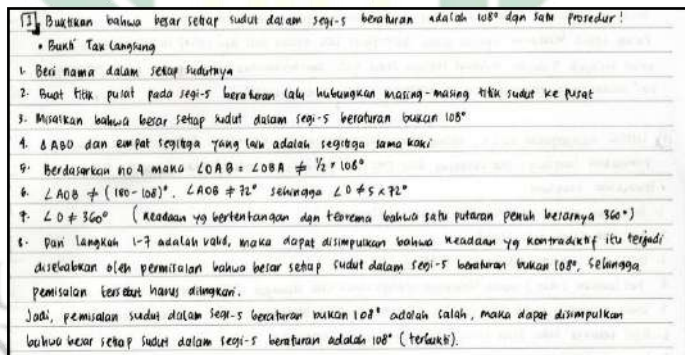 1. Buktikan bahwa besar setiap sudut dalam segi-5 beraturan adalah 108° dgn satu prosedur!
• Bukti Tak Langsung
1. Beri nama dalam setiap sudutnya
2. Buat titik pusat pada segi-5 beraturan lalu hubungkan masing-masing titik sudut ke pusat
3. Misalkan bahwa besar setiap sudut dalam segi-5 beraturan bukan 108°
4. Δ ABO dan empat segitiga yang lain adalah segitiga sama kaki
5. Berdasarkan no 4 maka ∠OAB = ∠OBA ≠ ½ × 108°
6. ∠AOB ≠ (180 - 108)°. ∠AOB ≠ 72° sehingga ∠O ≠ 5 × 72°
7. ∠O ≠ 360° (Keadaan yg bertentangan dgn teorema bahwa satu putaran penuh besarnya 360°)
8. Dari langkah 1-7 adalah valid, maka dapat disimpulkan bahwa keadaan yg kontradiktif itu terjadi
disebabkan oleh permisalan bahwa besar setiap sudut dalam segi-5 beraturan bukan 108°, Sehingga
pemisalan tersebut harus diingkari.
Jadi, pemisalan sudut dalam segi-5 beraturan bukan 108° adalah salah, maka dapat disimpulkan
bahwa besar setiap sudut dalam segi-5 beraturan adalah 108° (terbukti).